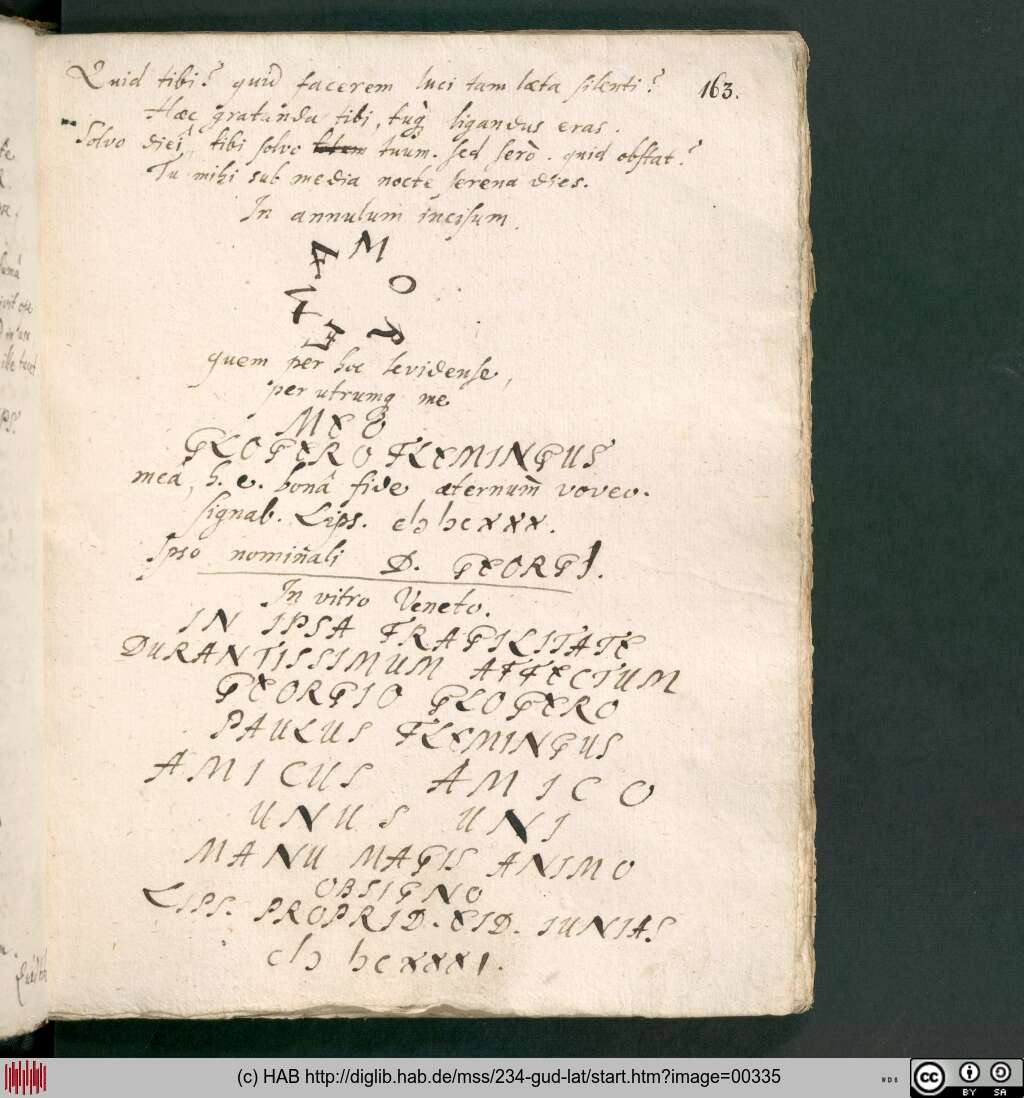 163.
Quid tibi? quid facerem luci tam læta silenti?
Hæc gratanda tibi, tuq́ꝫ ligandus eras.
Solvo diei, tibi solvo tuum. sed serò. quid obstat?
Tu mihi sub media nocte serena dies.
In annulum incisum.
AMOR
quem per hoc levidense,
per utrumq me
MEO
GLOGERO FLEMINGUS
meâ, h. e. bonâ fide æternum voveo.
signab. Lips. cIↄ Iↄc xxx.
Ipso nominali D. GEORGI.
In vitro Veneto.
IN IPSA FRAGILITATE
DURANTISSIMUM AFFECTUM
GEORGIO GLOGERO
PAULUS FLEMINGUS
AMICUS AMICO
UNUS UNI
MANU MAGIS ANIMO
OBSIGNO
LIPS. PROPRID. EID. IUNIAS
cIↄ Iↄc xxxI.
(c) HAB http://diglib.hab.de/mss/234-gud-lat/start.htm?image=00335
WDB
cc
BY SA